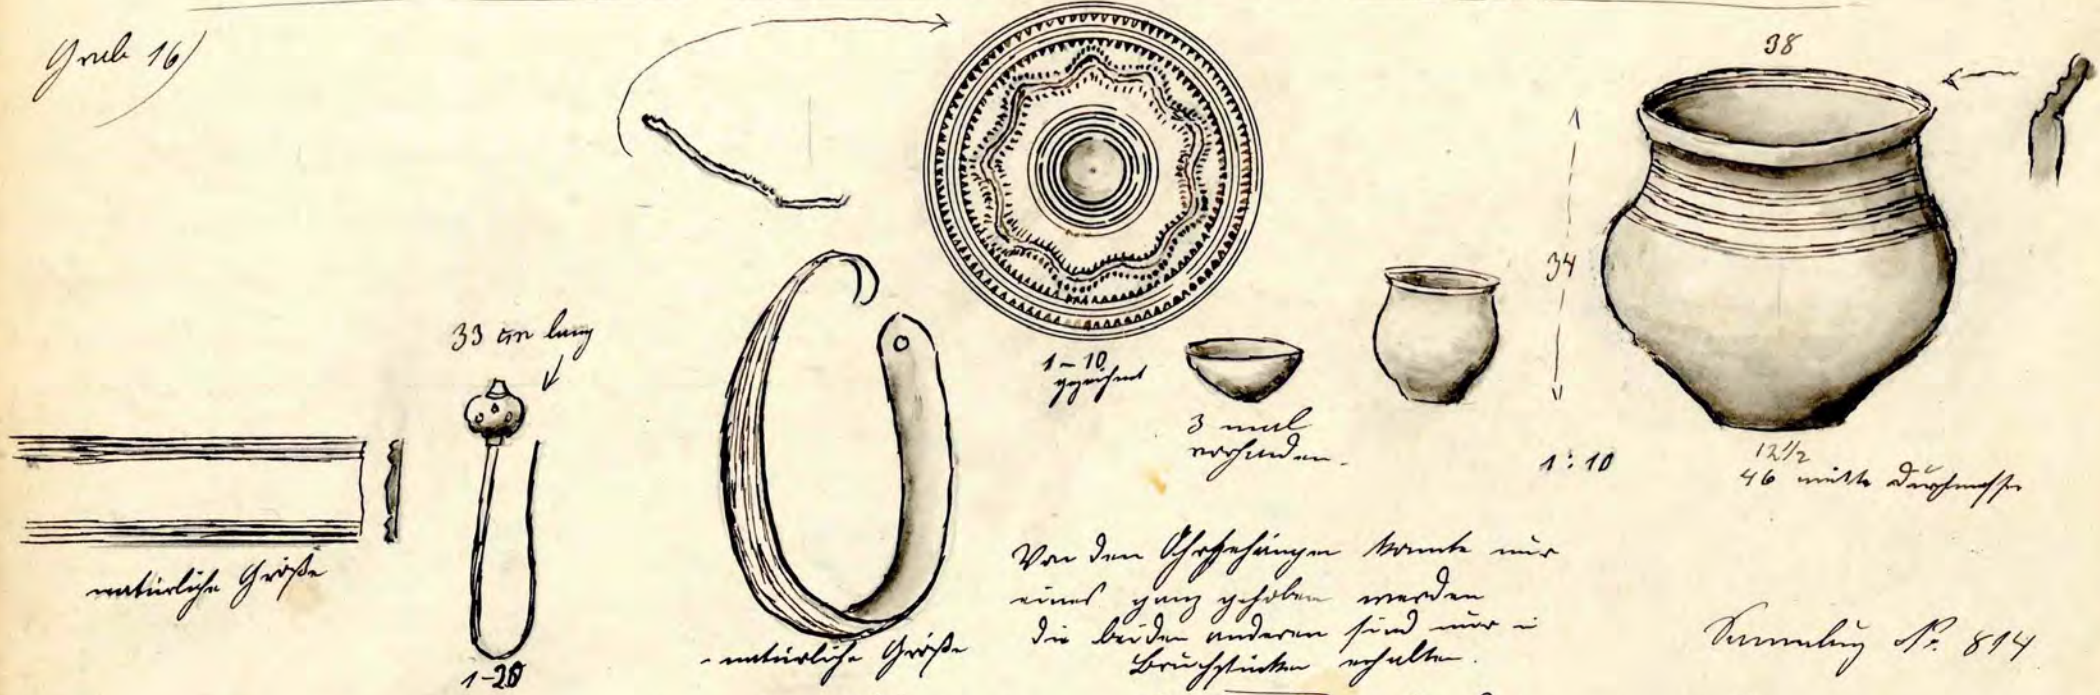 Grab 16)
38
34
33 cm lang
1-10
gezeichnet
3 mal
vorhanden.
1:10
12 1/2
46 mitte Durchmesser
natürliche Größe
1-20
natürliche Größe
Von den Ohrgehängen konnte nur
eines ganz gehoben werden
die beiden anderen sind nur in
Bruchstücken erhalten.
Sammlung No. 814